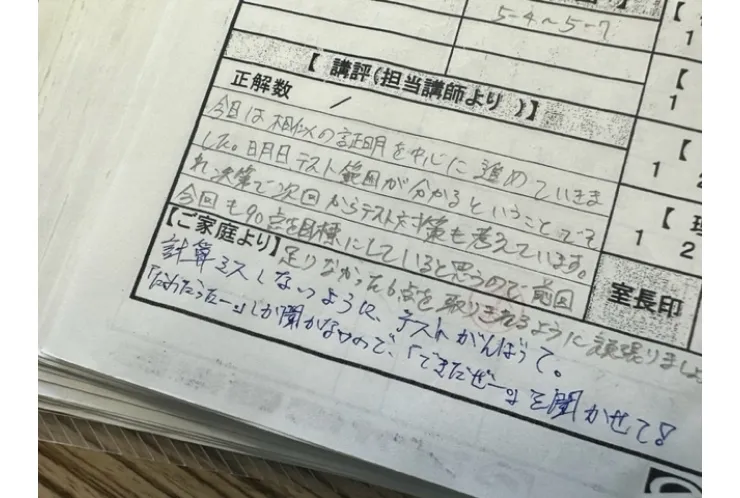 5-4〜5-7
【
1
【 講評(担当講師より )】
【
1
正解数 /
今日は相似の証明を中心に進めていきま
した。明日テスト範囲が分かるということでそ
れ次第で次回からテスト対策も考えています。
今回も90点を目標にしていると思うので前回
【ご家庭より】足りなかった6点を取りきれるように頑張りましょ
計算ミスしないように、テストがんばって。
しか聞かないので、「できたぜー。」を聞かせて!
【
1 2
【 理
1 2
室長印